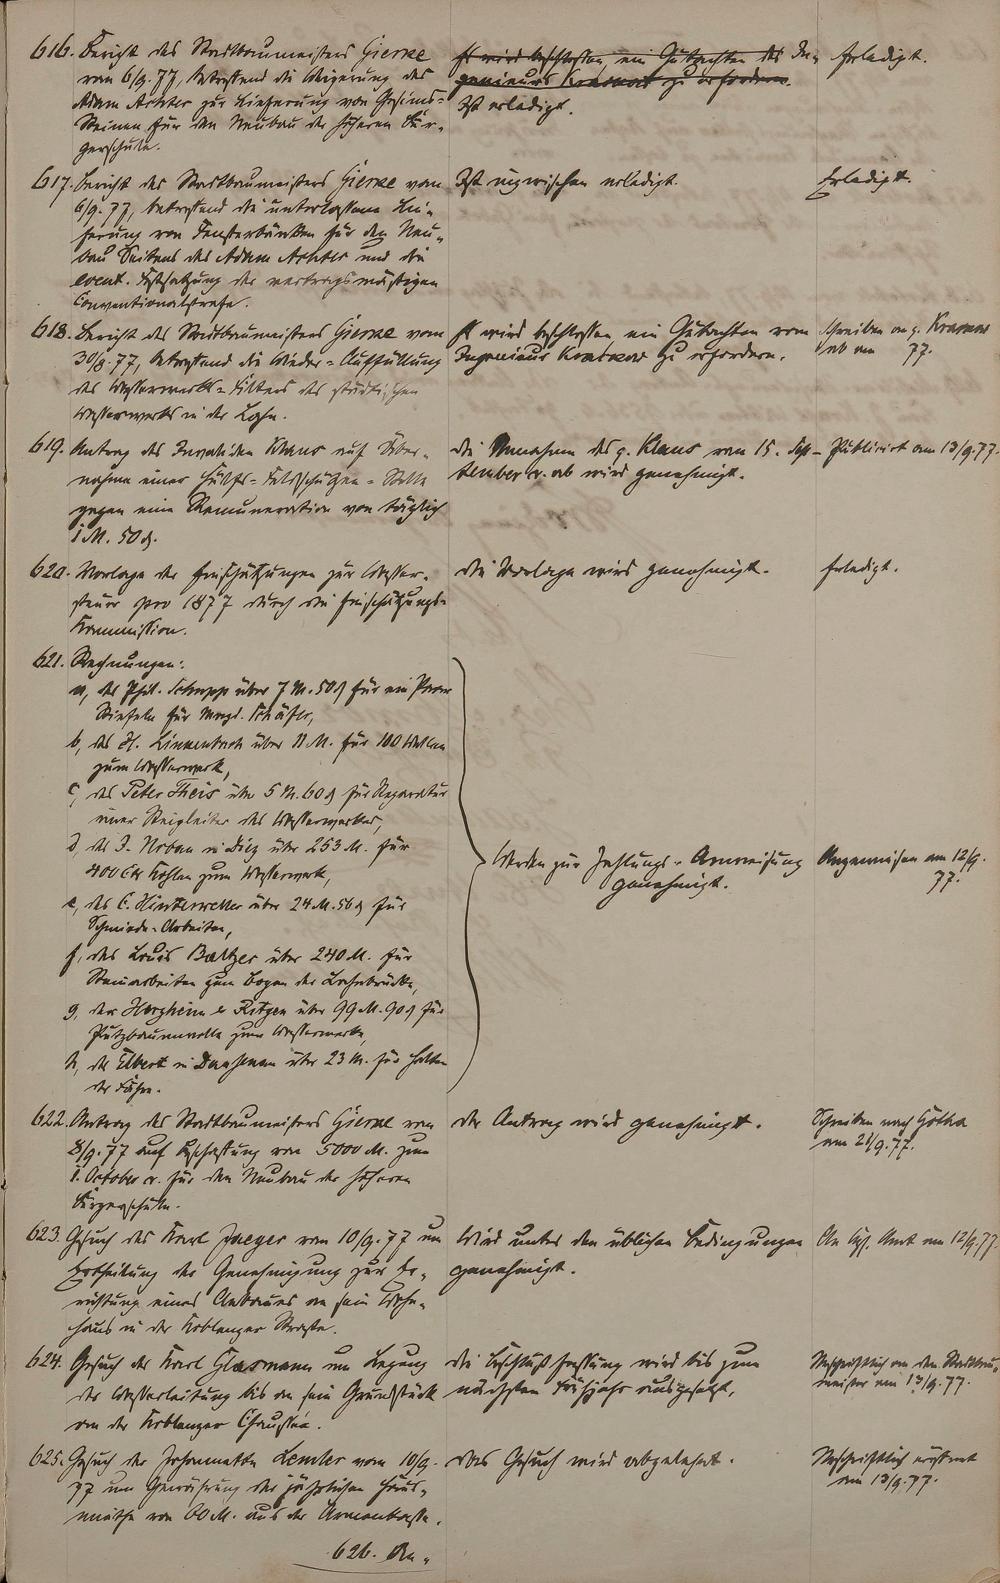 616. Bericht des Stadtbaumeisters Gierke
vom 6/9. 77, betreffend die Weigerung des
Adam Achter zur Lieferung von Gesims-
Steinen für den Neubau der höheren Bür-
gerschule.
Es wird beschlossen, ein Gutachten des In-
genieurs Kramer zu erfordern.
Ist erledigt.
Erledigt.
617. Bericht des Stadtbaumeisters Gierke vom
6/9. 77, betreffend die unterlassene Lie-
ferung von Fensterbänken für den Neu-
bau Seitens des Adam Achter und die
event. Festsetzung der vertragsmäßigen
Conventionalstrafe.
Ist inzwischen erledigt.
Erledigt.
618. Bericht des Stadtbaumeisters Gierke vom
30/8. 77, betreffend die Wieder-Auffüllung
des Wasserwerks-Filters des städtischen
Wasserwerks in der Lahn.
Es wird beschlossen, ein Gutachten vom
Ingenieur zu erfordern.
Schreiben an
ab am 77.
619. Antrag des Invaliden Klaus auf Über-
nahme einer Hülfs-Feldschützen-Stelle
gegen eine Remuneration von täglich
1 M. 50 d.
Die Annahme des p. Klaus vom 15. Sep-
tember c. ab wird genehmigt.
Publicirt am 13/9. 77.
620. Vorlage der Einschätzungen zur Wasser-
steuer pro 1877 durch die Einschätzungs-
Kommission.
Die Vorlage wird genehmigt.
Erledigt.
621. Rechnungen:
a, des Phil. Schupp über 7 M. 50 d für ein Paar
Stiefeln für Schäfer,
b, des H. Linnenbach über 11 M. für 100 Wellen
zum Wasserwerk,
c, des Peter Theis über 5 M. 60 d für Reparatur
einer Steigleiter des Wasserwerkes,
d, des J. Urban in Diez über 253 M. für
400 Ctr Kohlen zum Wasserwerk,
e, des C. Hinterwelter über 24 M. 56 d für
Schmiede-Arbeiten,
f, des Louis Baltzer über 240 M. für
Steinarbeiten zum Bogen der Lahnbrücke,
g, der Herzheim & Ritgen über 99 M. 90 d für
Putzbaumwolle zum Wasserwerke,
h, des Elbert in über 23 M. für Halten
der Fähre.
Werden zur Zahlungs-Anweisung
genehmigt.
Angewiesen am 12/9.
77.
622. Antrag des Stadtbaumeisters Gierke vom
8/9. 77 auf Beschaffung von 5000 M. zum
1. October c. für den Neubau der höheren
Bürgerschule.
Der Antrag wird genehmigt.
Schreiben nach Gotha
am 21/9. 77.
623. Gesuch des Karl Jaeger vom 10/9. 77 um
Ertheilung der Genehmigung zur Er-
richtung eines Anbaues an sein Wohn-
haus in der Koblenzer Straße.
Wird unter den üblichen Bedingungen
genehmigt.
An Kgl. Amt am 12/9. 77.
624. Gesuch des Karl Glasmann um Legung
der Wasserleitung bis an sein Grundstück
an der Koblenzer Chaussée.
Die Beschlußfassung wird bis zum
nächsten Frühjahr ausgesetzt.
Abschriftlich an den Stadtbau-
meister am 13/9. 77.
625. Gesuch der Johannette Lemler vom 10/9.
77 um Gewährung der jährlichen Haus-
miethe von 60 M. aus der Armenkasse.
Das Gesuch wird abgelehnt.
Abschriftlich eröffnet
am 13/9. 77.
626. An-